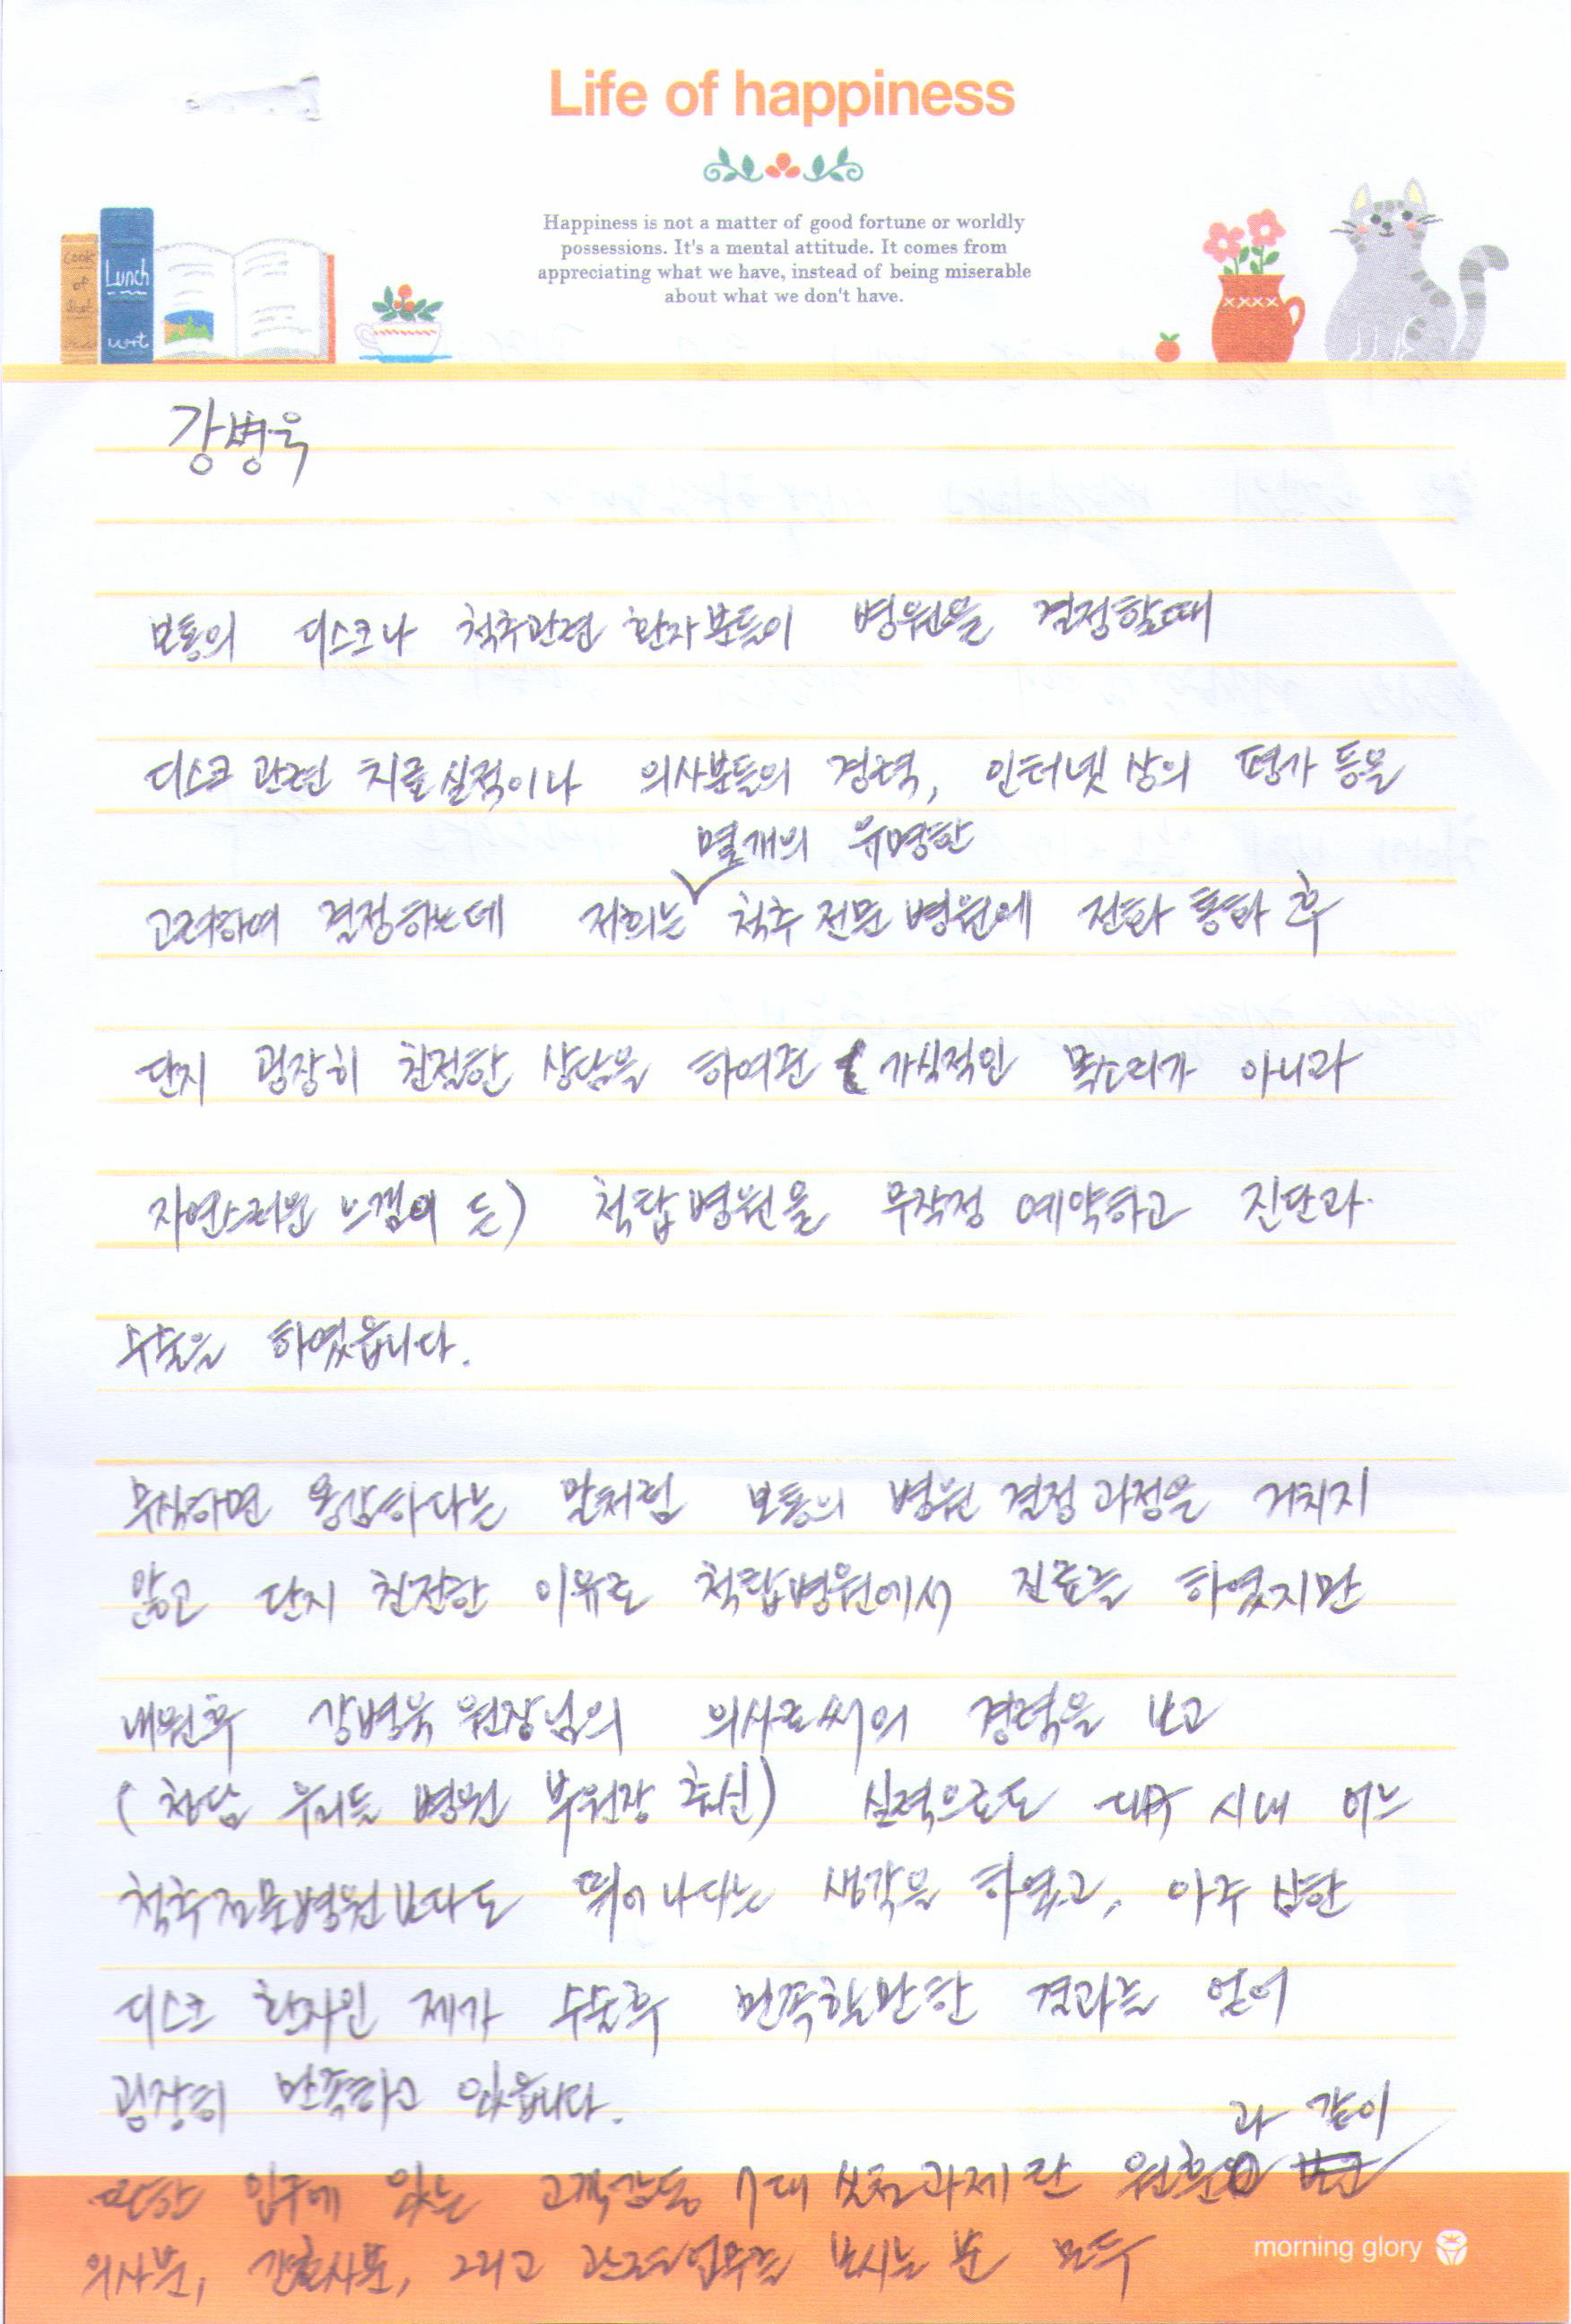 Life of happiness
Happiness is not a matter of good fortune or worldly
possessions. It's a mental attitude. It comes from
appreciating what we have, instead of being miserable
about what we don't have.
cook
of
Lunch
강병욱
보통의 디스크나 척추관련 환자분들이 병원을 결정할때
디스크 관련 치료실적이나 의사분들의 경력, 인터넷 상의 평가 등을
몇개의 유명한
고려하여 결정하는데 저희는 척추 전문 병원에 전화 통화 후
단지 굉장히 친절한 상담을 하여준 ( 가식적인 목소리가 아니라
자연스러운 느낌이 든) 척탑병원을 무작정 예약하고 진단과
수술을 하였읍니다.
무식하면 용감하다는 말처럼 보통의 병원 결정 과정을 거치지
않고 단지 친절한 이유로 척탑병원에서 진료를 하였지만
내원후 강병욱 원장님의 의사로써의 경력을 보고
(청담 우리들 병원 부원장 출신) 실적으로도 대구 시내 어느
척추전문병원보다도 뛰어나다는 생각을 하였고, 아주 심한
디스크 환자인 제가 수술후 만족할만한 결과를 얻어
굉장히 만족하고 있읍니다.
과 같이
입구에 있는 고객감동 7대 실천과제란 원훈
의사분, 간호사분, 그리고 업무를 보시는 분 모두
morning glory